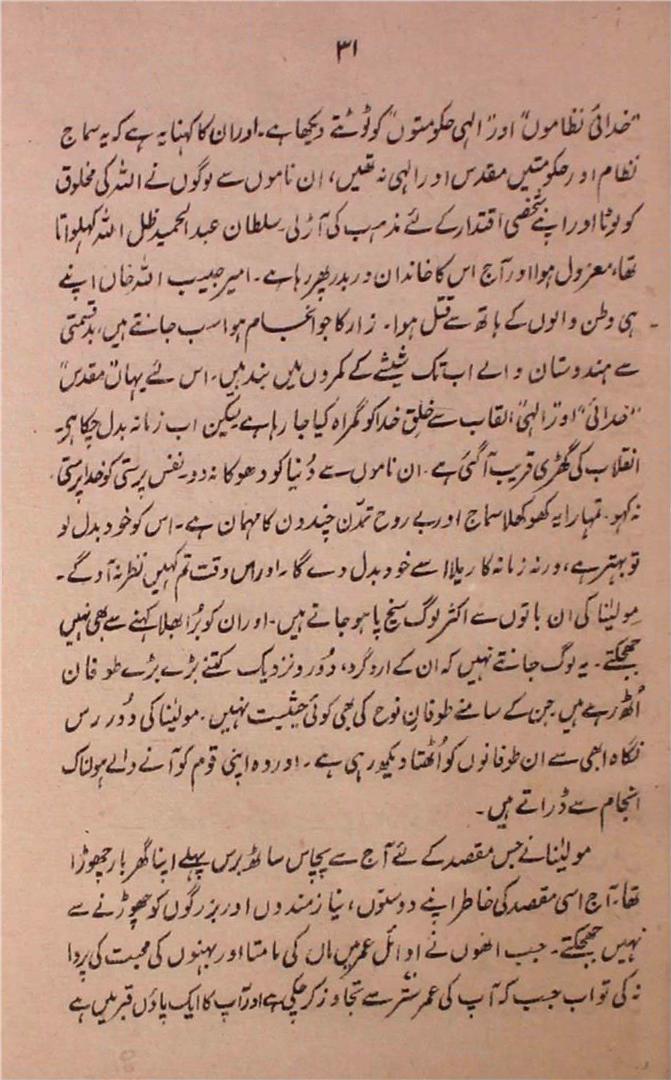 ۳۱
"خدائی نظاموں" اور "الٰہی حکومتوں" کو ٹوٹتے دیکھا ہے۔ اور ان کا کہنا یہ ہے کہ یہ سماج
نظام اور حکومتیں مقدس اور الٰہی نہ تھیں، ان ناموں سے لوگوں نے اللہ کی مخلوق
کو لوٹا اور اپنے شخصی اقتدار کے لئے مذہب کی آڑ لی۔ سلطان عبدالحمید ظل اللہ کہلواتا
تھا، معزول ہوا اور آج اس کا خاندان دربدر پھر رہا ہے۔ امیر حبیب اللہ خاں اپنے
ہی وطن والوں کے ہاتھ سے قتل ہوا۔ زار کا جو انجام ہوا سب جانتے ہیں، بدقسمتی
سے ہندوستان والے اب تک شیشے کے کمروں میں بند ہیں۔ اس لئے یہاں "مقدس"
"خدائی" اور "الٰہی" القاب سے خلق خدا کو گمراہ کیا جا رہا ہے لیکن اب زمانہ بدل چکا ہے۔
انقلاب کی گھڑی قریب آ گئی ہے۔ ان ناموں سے دُنیا کو دھوکا نہ دو۔ نفس پرستی کو خدا پرستی
نہ کہو۔ تمہارا یہ کھوکھلا سماج اور بے روح تمدّن چند دن کا مہمان ہے۔ اس کو خود بدل لو
تو بہتر ہے، ورنہ زمانہ کا ریلا اسے خود بدل دے گا۔ اور اس وقت تم کہیں نظر نہ آؤ گے۔
مولیٰنا کی ان باتوں سے اکثر لوگ سیخ پا ہو جاتے ہیں۔ اور ان کو بُرا بھلا کہنے سے بھی نہیں
جھجکتے۔ یہ لوگ جانتے نہیں کہ ان کے ارد گرد، دُور و نزدیک کتنے بڑے بڑے طوفان
اُٹھ رہے ہیں جن کے سامنے طوفانِ نوح کی بھی کوئی حیثیت نہیں۔ مولیٰنا کی دُور رس
نگاہ ابھی سے ان طوفانوں کو اُٹھتا دیکھ رہی ہے۔ اور وہ اپنی قوم کو آنے والے ہولناک
انجام سے ڈراتے ہیں۔
مولیٰنا نے جس مقصد کے لئے آج سے پچاس ساٹھ برس پہلے اپنا گھر بار چھوڑا
تھا۔ آج اسی مقصد کی خاطر اپنے دوستوں، نیازمندوں اور بزرگوں کو چھوڑنے سے
نہیں جھجکتے۔ جب انھوں نے اوائل عمر میں ماں کی مامتا اور بہنوں کی محبت کی پروا
نہ کی تو اب جب کہ آپ کی عمر ستّر سے تجاوز کر چکی ہے اور آپ کا ایک پاؤں قبر میں ہے